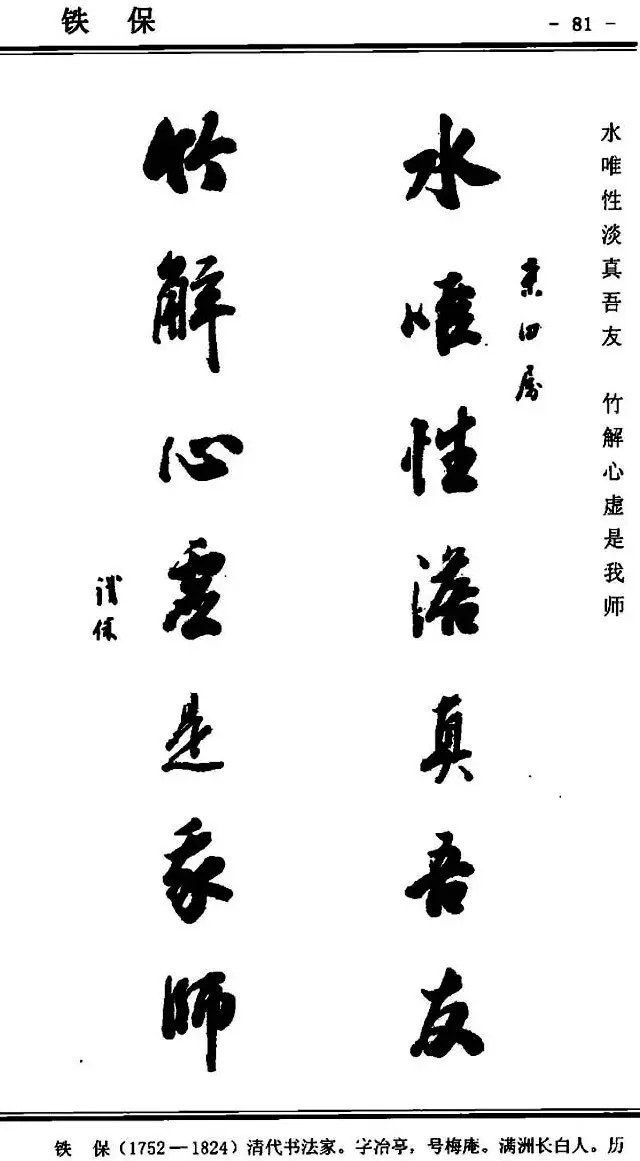 铁 保
- 81 -
水唯性淡真吾友 竹解心虚是我师
水唯性澹真吾友
竹解心虛是我師
鐵保
铁 保（1752—1824）清代书法家。字冶亭，号梅庵。满洲长白人。历